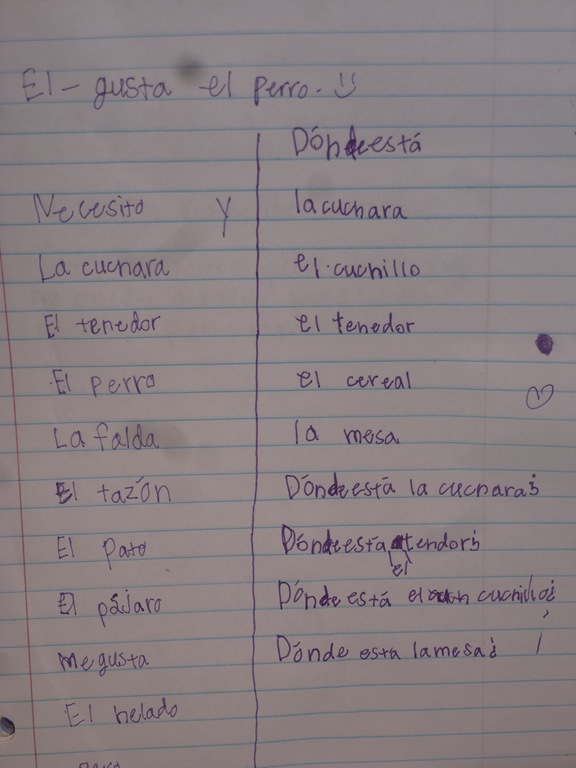 El - gusta el perro.
Necesito y
La cuchara
El tenedor
El perro
La falda
El tazón
El pato
El pájaro
me gusta
El helado
Dónde está
la cuchara
el cuchillo
el tenedor
el cereal
la mesa
Dónde está la cuchara¿
Dónde está el tendor¿
Dónde está el cuchillo¿
Dónde está la mesa¿